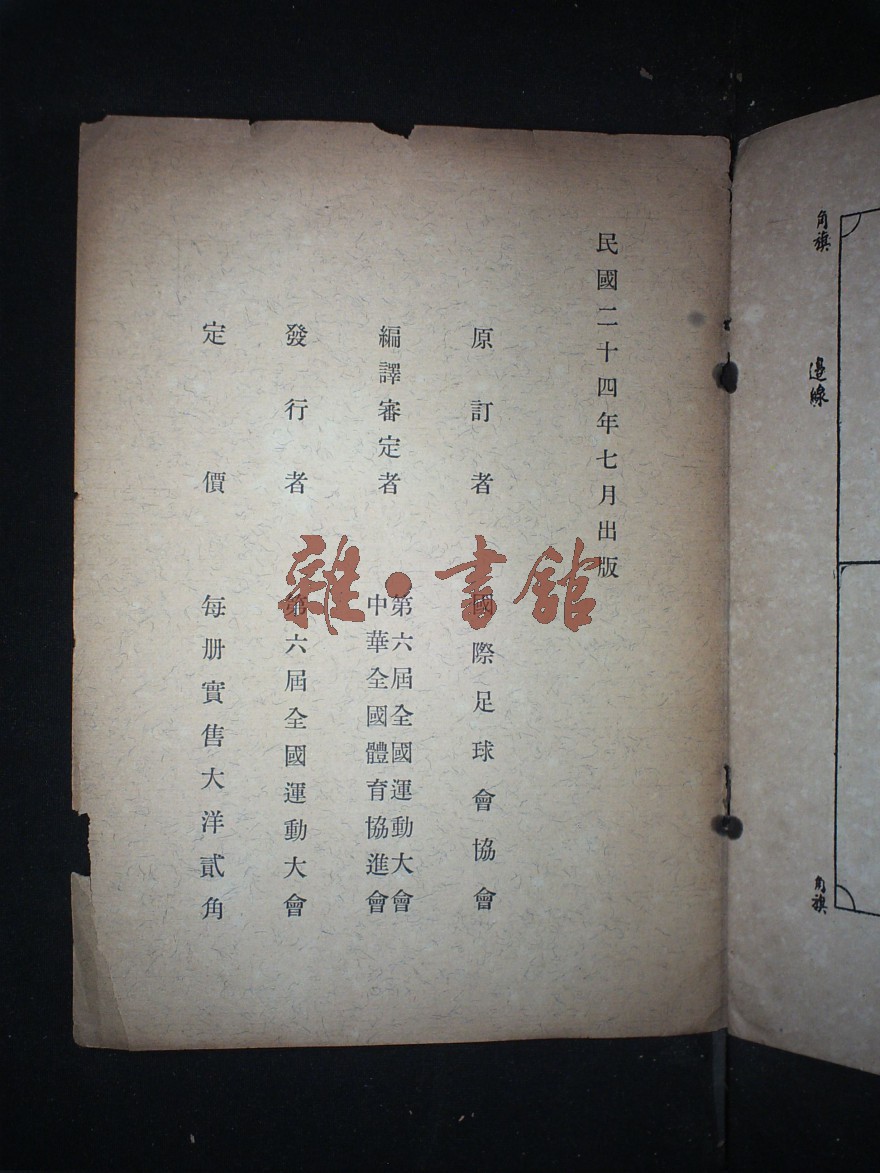 民國二十四年七月出版
原訂者 國際足球會協會
編譯審定者 第六屆全國運動大會
中華全國體育協進會
發行者 第六屆全國運動大會
定價 每册實售大洋貳角
雜·書館
角旗
邊線
角旗